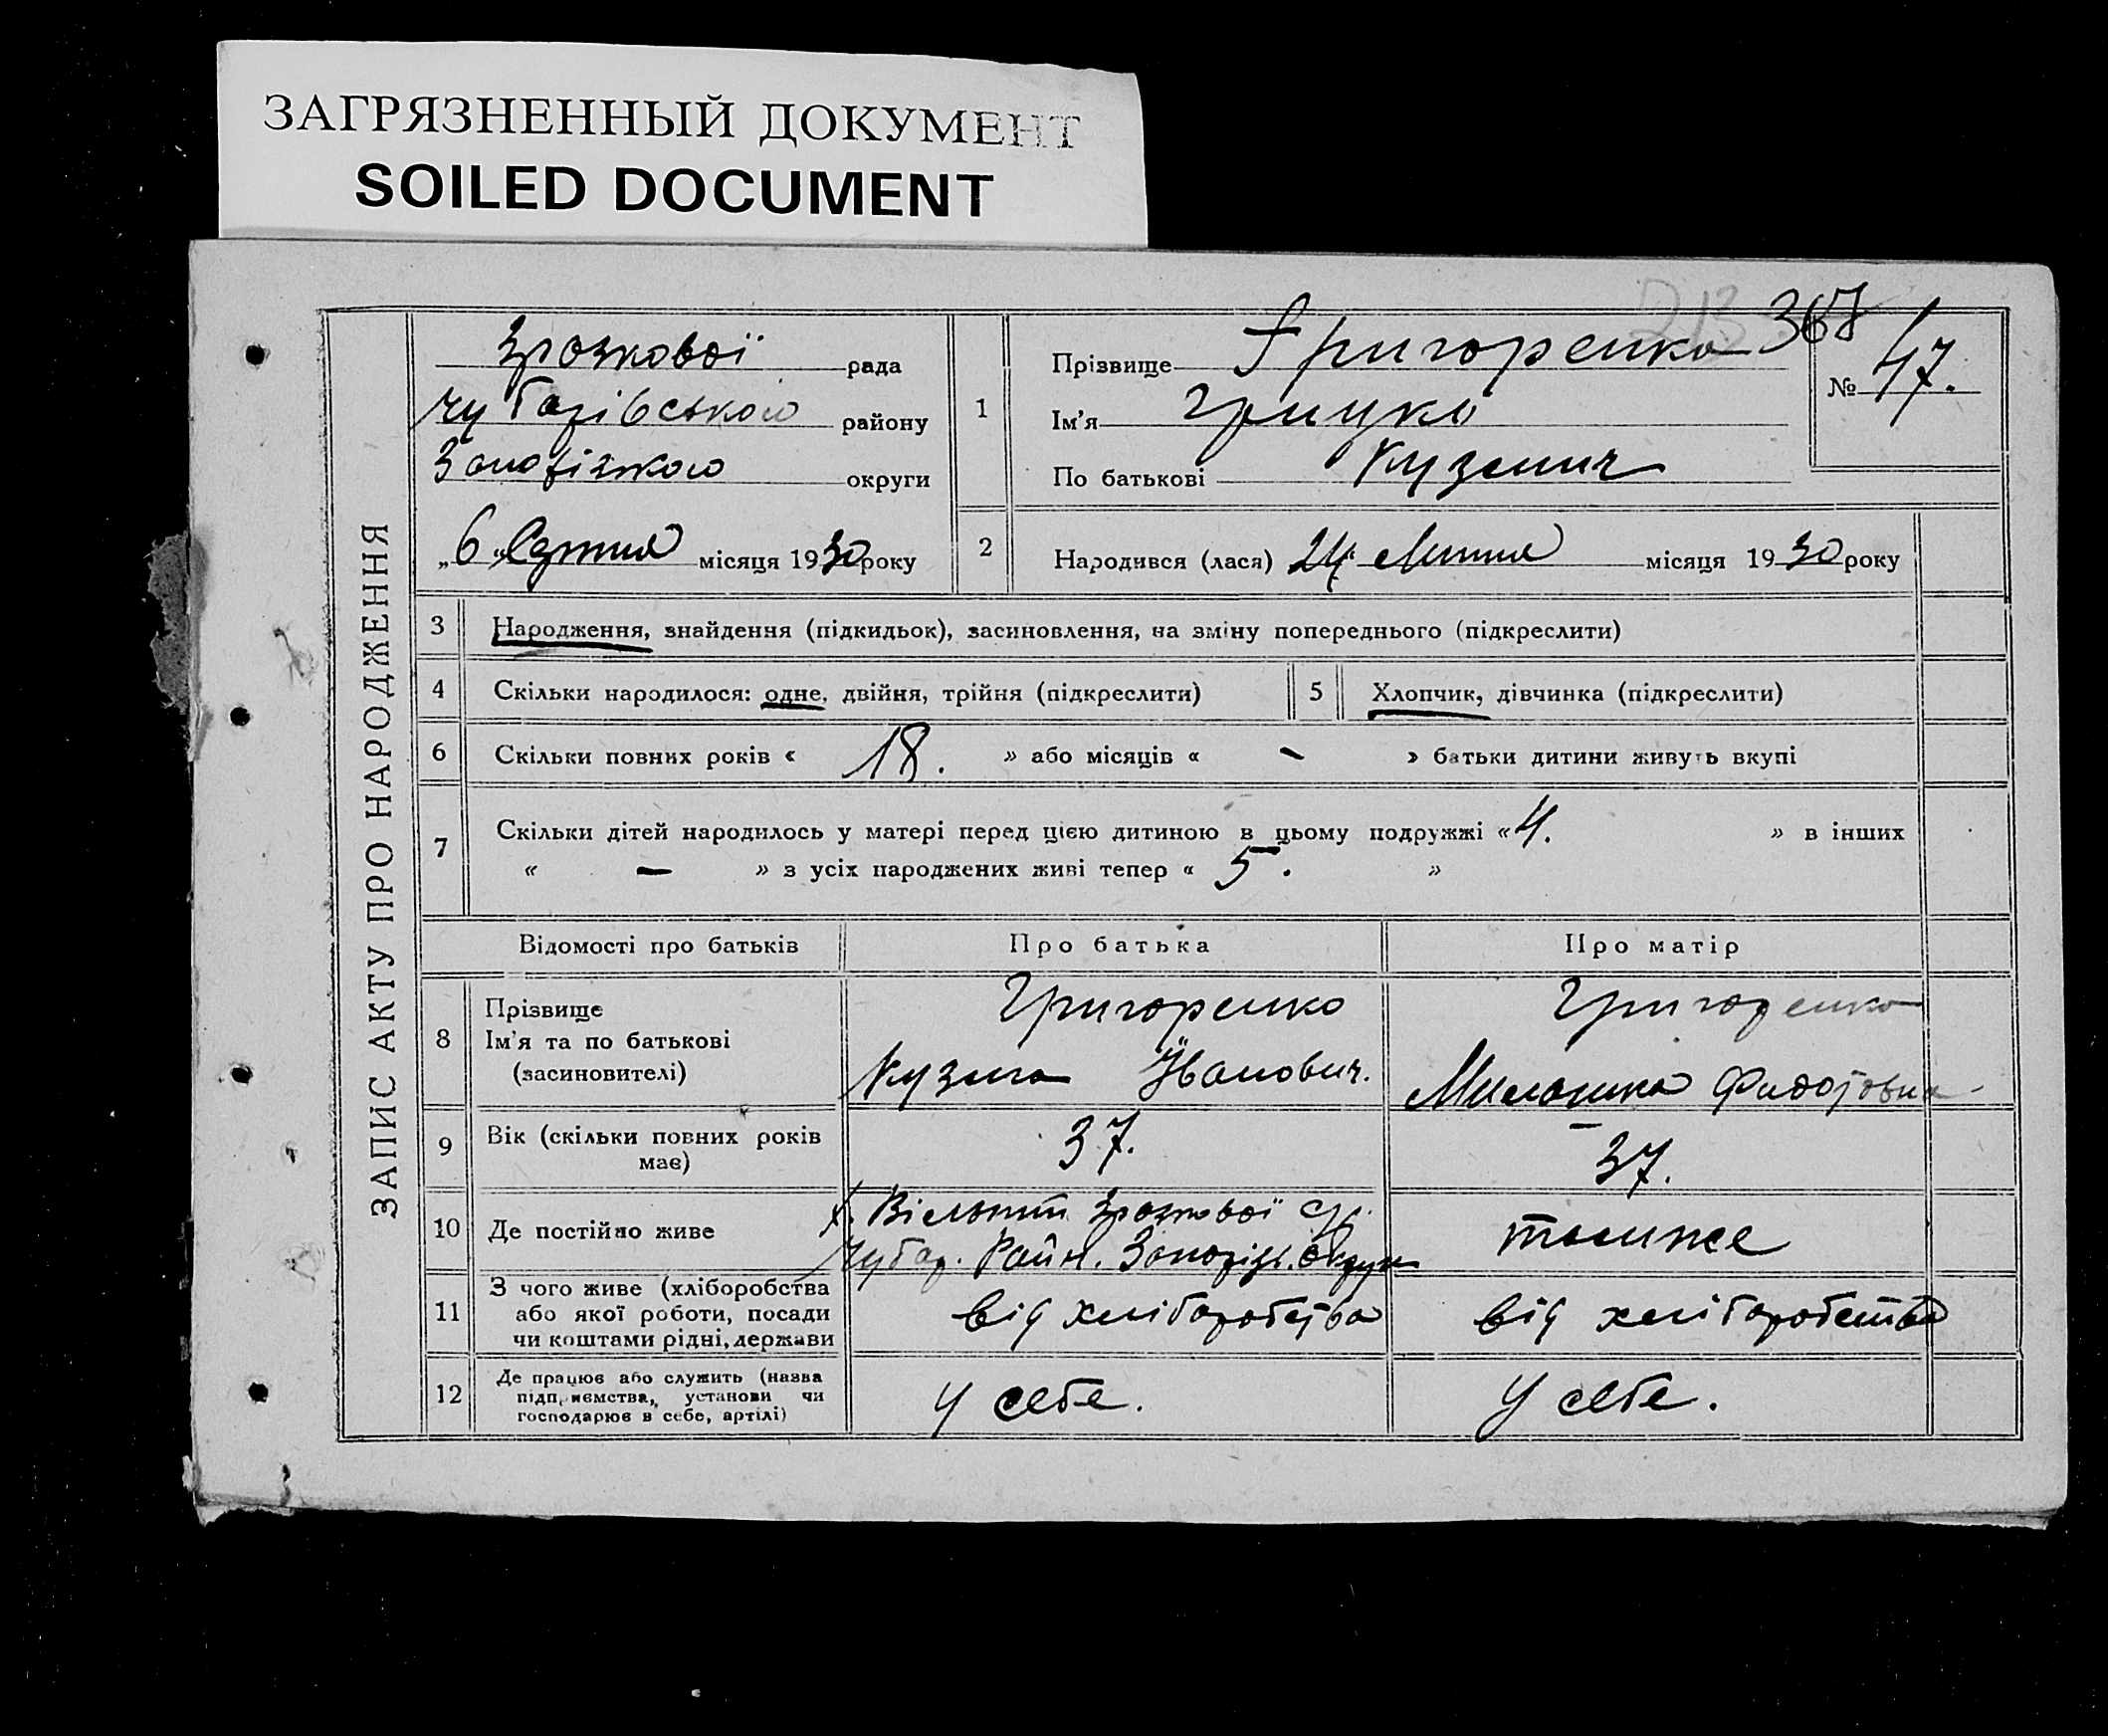 ЗАГРЯЗНЕННЫЙ ДОКУМЕНТ
SOILED DOCUMENT
213 368
ЗАПИС АКТУ ПРО НАРОДЖЕННЯ
Зразкової рада
Чубарівського району
Запорізького округи
„6" Серпня місяця 1930 року
1
Прізвище Григоренко
Ім'я Грицько
По батькові Кузьмич
№ 47.
2 Народився (лася) 24 Липня місяця 1930 року
3 Народження, знайдення (підкидьок), засиновлення, на зміну попереднього (підкреслити)
4 Скільки народилося: одне, двійня, трійня (підкреслити) 5 Хлопчик, дівчинка (підкреслити)
6 Скільки повних років « 18. » або місяців « – » батьки дитини живуть вкупі
7 Скільки дітей народилось у матері перед цією дитиною в цьому подружжі « 4. » в інших
« — » з усіх народжених живі тепер « 5. »
Відомості про батьків Про батька Про матір
8 Прізвище
Ім'я та по батькові
(засиновителі)
Григоренко
Кузьма Іванович.
Григоренко
Федотовна
9 Вік (скільки повних років
має)
37.
37.
10 Де постійно живе
х. Вільний Зразкової с/р.
Чубар. Райн. Запоріз. Округи
також
11 З чого живе (хліборобства
або якої роботи, посади
чи коштами рідні, держави
від хліборобства
від хліборобства
12 Де працює або служить (назва
підприємства, установи чи
господарює в себе, артілі)
У себе.
У себе.